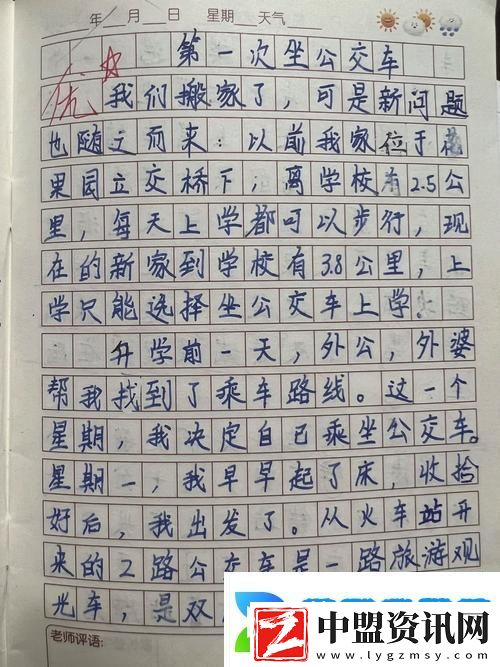 年 月 日 星期 天气
第一次坐公交车
优
我们搬家了，可是新问题
也随之而来：以前我家位于花
果园立交桥下，离学校有2.5公
里，每天上学都可以步行，现
在的新家到学校有3.8公里，上
学只能选择坐公交车上学。
升学前一天，外公，外婆
帮我找到了乘车路线。过一个
星期，我决定自已乘坐公交车。
星期一，我早早起了床，收拾
好后，我出发了。从火车站开
来的2路公交车是一路旅游观
光车，是双
老师评语：
中盟资讯网
www.lygzmsy.com